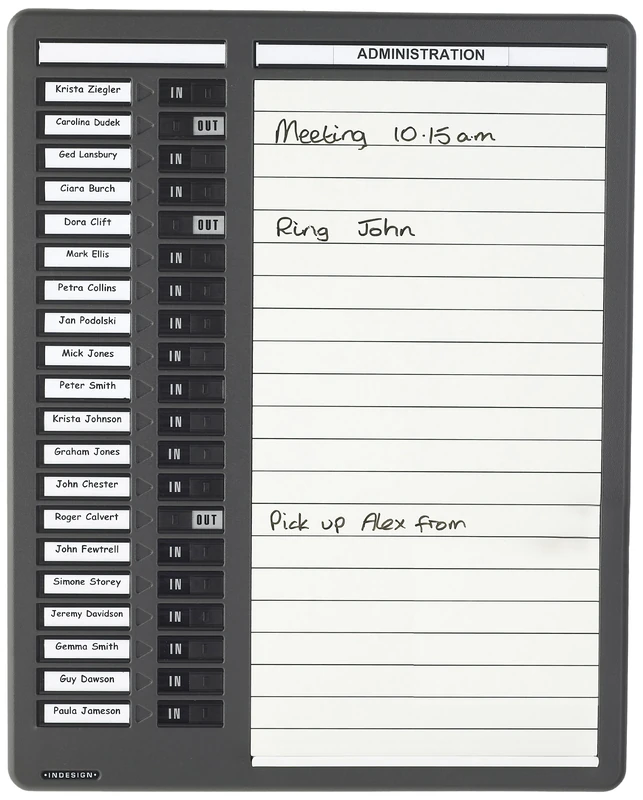 ADMINISTRATION
Krista Ziegler IN
Carolina Dudek OUT Meeting 10.15am
Ged Lansbury IN
Ciara Burch IN
Dora Clift OUT Ring John
Mark Ellis IN
Petra Collins IN
Jan Podolski IN
Mick Jones IN
Peter Smith IN
Krista Johnson IN
Graham Jones IN
John Chester IN
Roger Calvert OUT Pick up Alex from
John Fewtrell IN
Simone Storey IN
Jeremy Davidson IN
Gemma Smith IN
Guy Dawson IN
Paula Jameson IN
•INDESIGN•